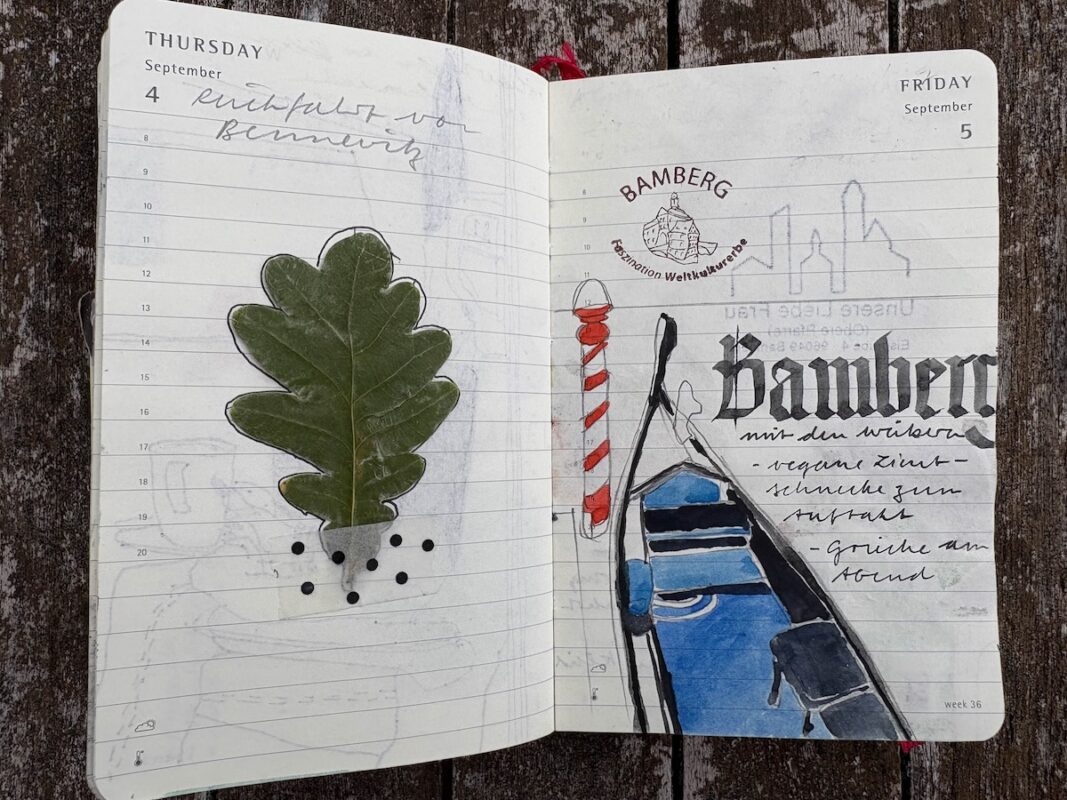 THURSDAY
September
4
Rückfahrt von
Bennewitz
8
9
10
11
12
13
14
15
16
17
18
19
20
FRIDAY
September
5
BAMBERG
Faszination Weltkulturerbe
8
9
10
11
12
17
Unsere Liebe Frau
(Obere Pfarre)
Bamberg
mit den Weibern
- vegane Zimt-
schnecke zum
Auftakt
- Grieche am
Abend
week 36